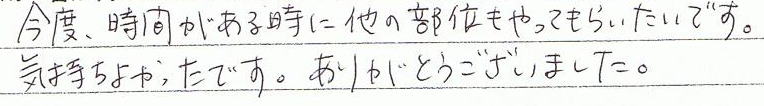 今度、時間がある時に他の部位もやってもらいたいです。
気持ちよかったです。ありがとうございました。